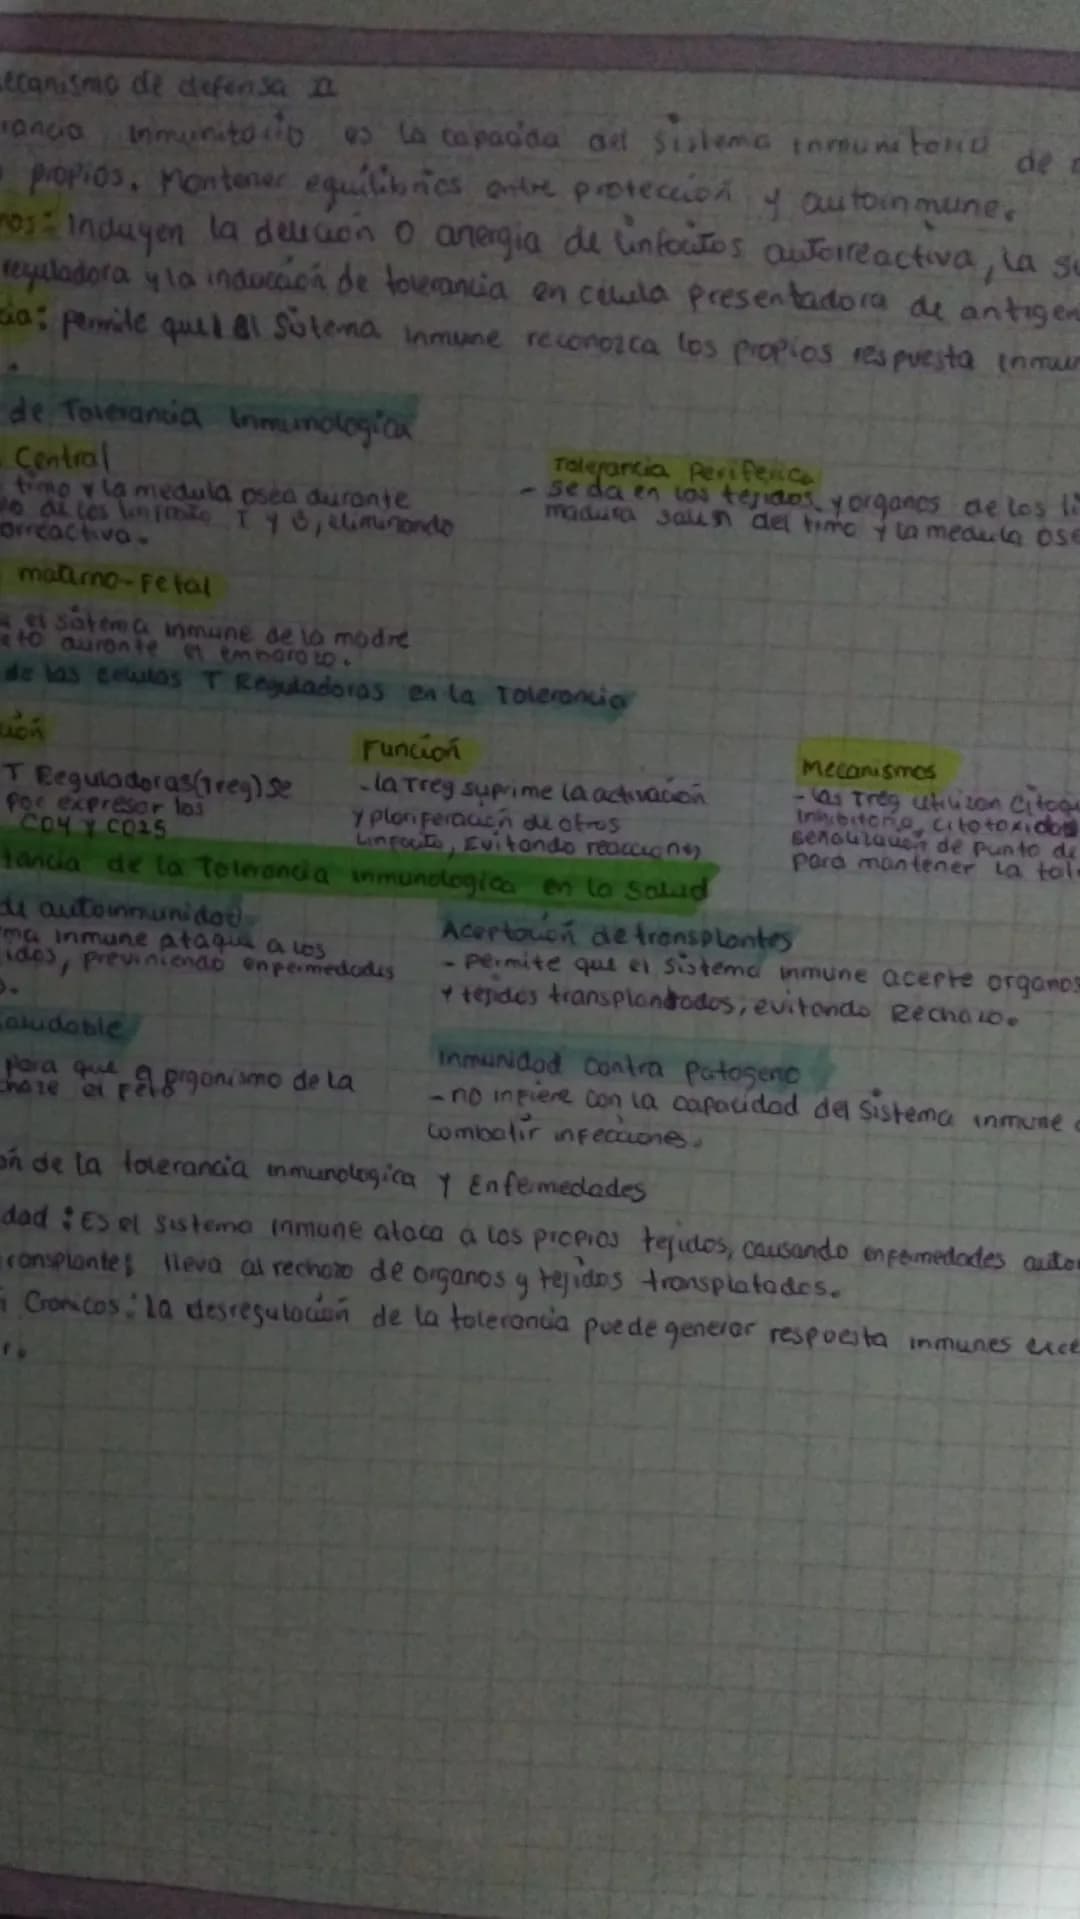 ecanismo de defensa II
rancia inmunitario es la capacida del sistema inmunitorio de
propios. Mantener equilibrios entre protección y autoinmune.
nos: Incluyen la deleción o anergia de linfocitos autorreactiva, la su
reguladora y la inducción de tolerancia en célula presentadora de antigen
cia: permite que el sistema inmune reconozca los propios respuesta inmun
de Tolerancia Inmunologica
Central
timo y la medula osea durante
de los linfocito T y B, eliminando
orreactiva.
Tolerancia Periferica
- se da en los tejidos y organos de los li
madura salen del timo y la medula ose
materno-Fetal
el sistema inmune de la madre
eto durante el embarazo.
de las celulas T Reguladoras en la Tolerancia
ción
T Reguladoras (Treg) se
por expresar los
CD4 y CD25
Función
- la Treg suprime la activación
y ploriferación de otros
linfocito, Evitando reacciones
Mecanismos
- las Treg utilizan citoqu
inhibitoria, citotoxidad
señalización de punto de
para mantener la tol
tancia de la Tolerancia inmunologica en la salud
de autoinmunidad
ma inmune ataque a los
idos, previniendo enfermedades
Aceptación de transplantes
- Permite que el sistema inmune acepte organos
y tejidos transplantados, evitando Rechazo.
saludable
para que el organismo de la
chaze el feto
inmunidad contra Patogeno
- no infiere con la capacidad del sistema inmune
combatir infecciones.
ón de la tolerancia inmunologica y Enfermedades
dad: Es el sistema inmune ataca a los propios tejidos, causando enfermedades auto
ransplantes lleva al rechazo de organos y tejidos transplatados.
Cronicos: la desregulación de la tolerancia puede generar respuesta inmunes exce
r.